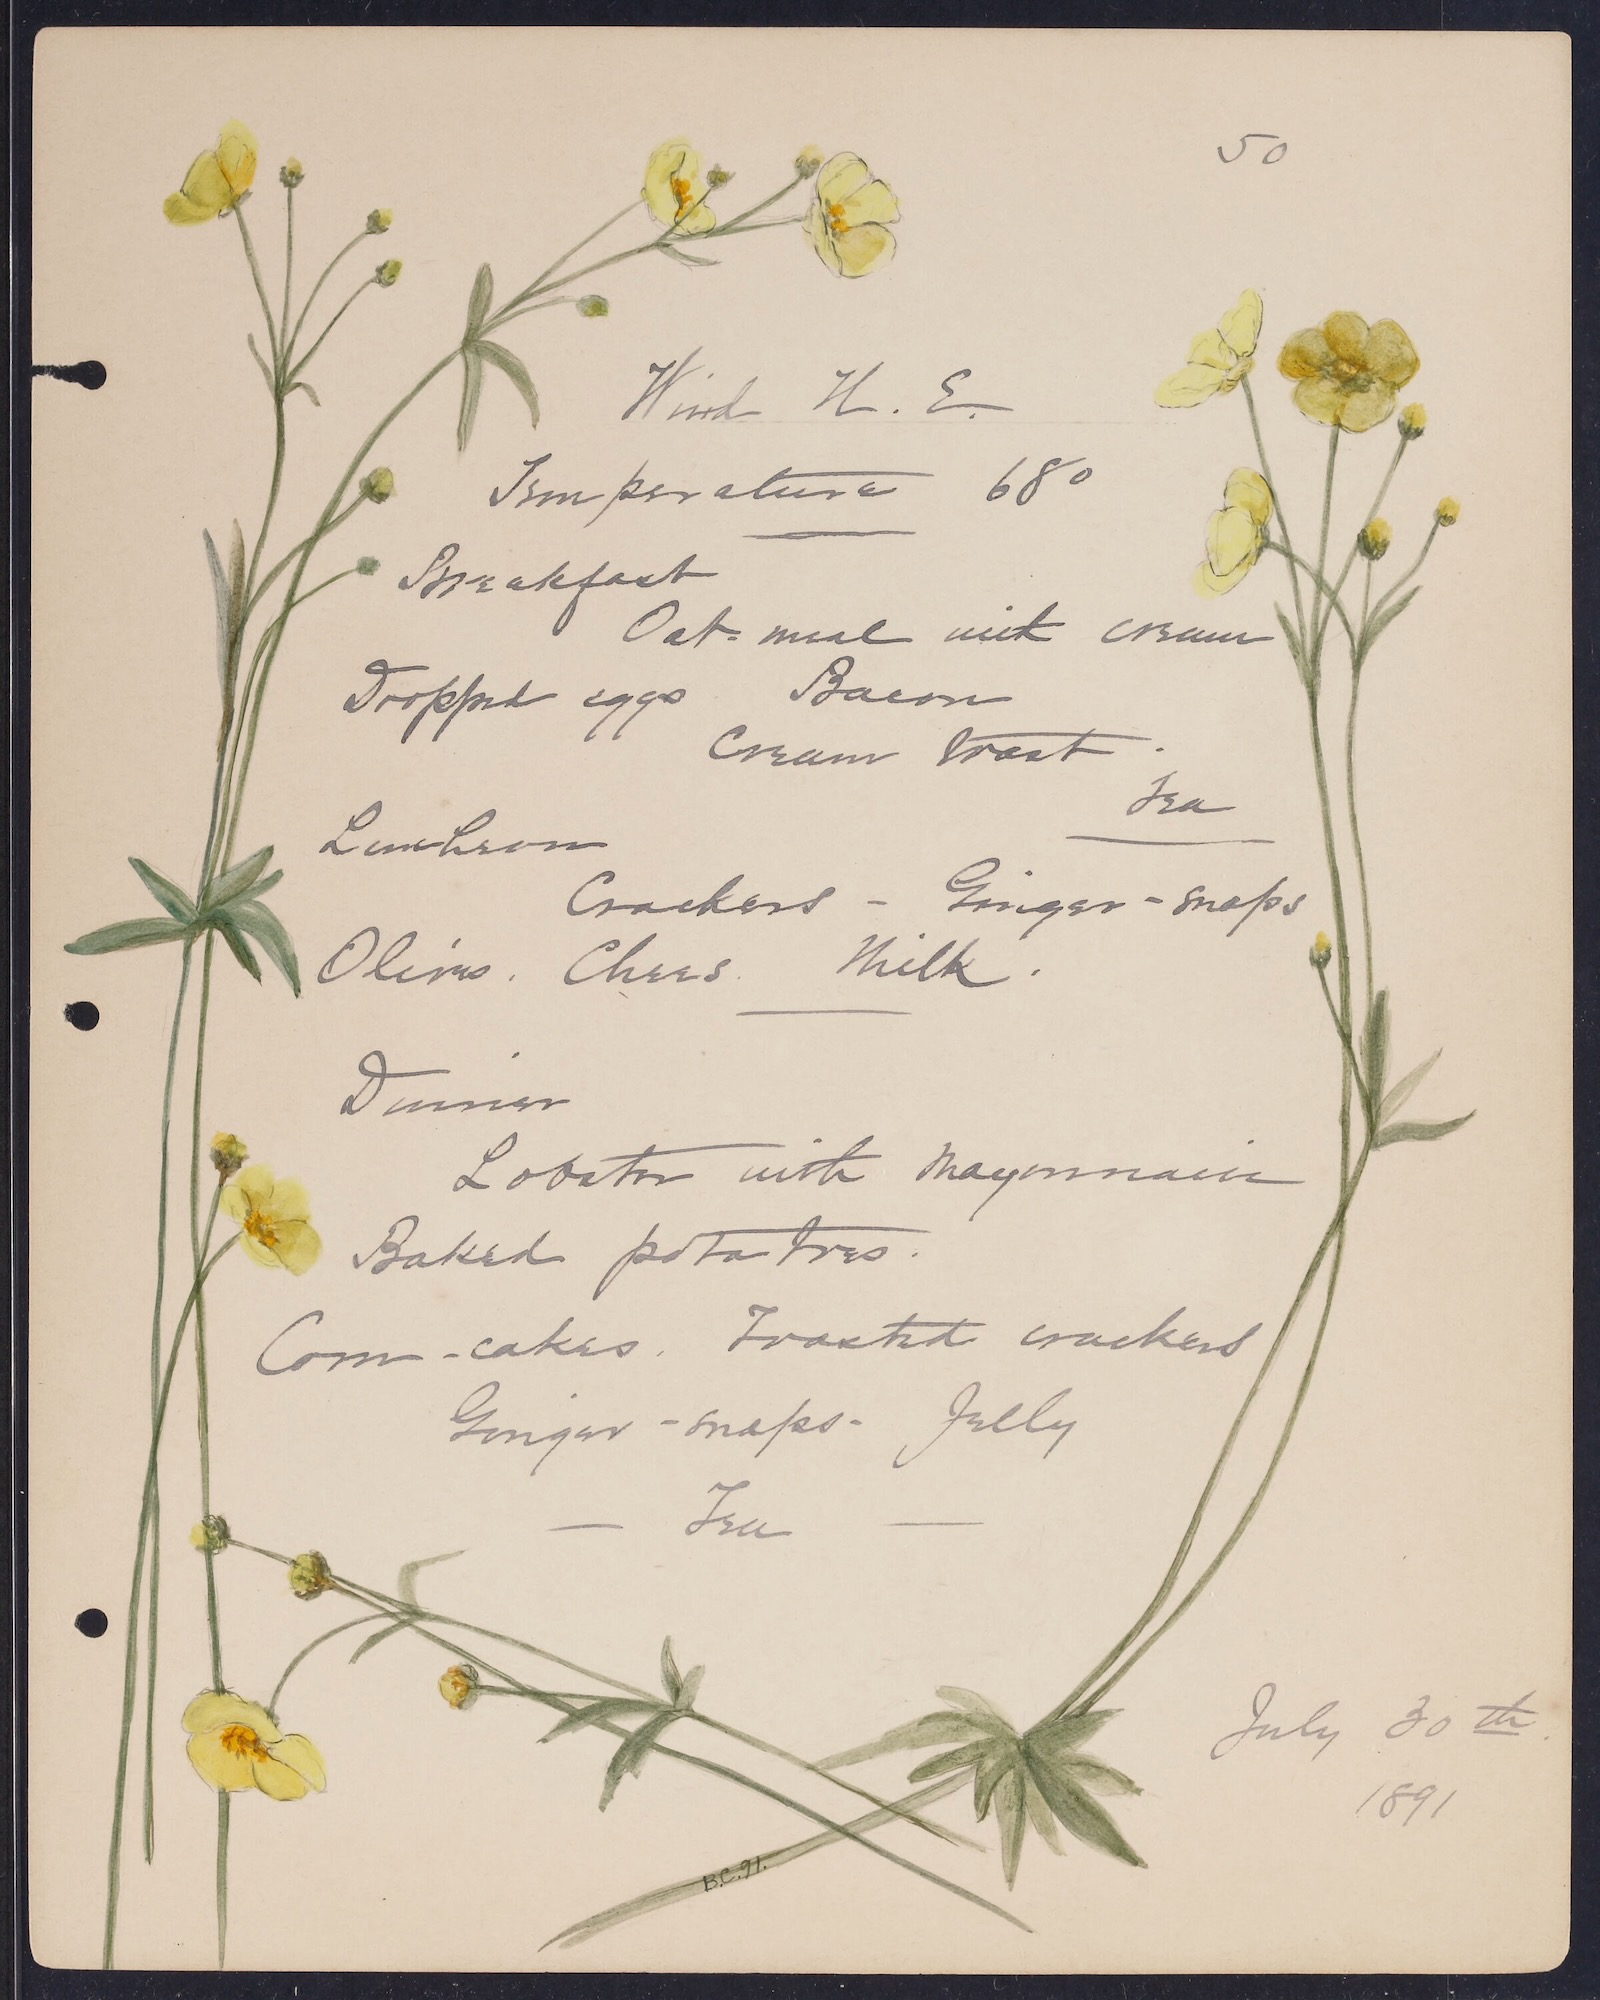 50
Wind N. E.
Temperature 68°
Breakfast
Oat-meal with cream
Dropped eggs Bacon
Cream toast.
Tea
Luncheon
Crackers - Ginger-snaps
Olives. Chees. Milk.
Dinner
Lobster with Mayonnaise
Baked potatoes.
Corn-cakes. Toasted crackers
Ginger-snaps- Jelly
— Tea —
July 30th.
1891
B.C.91.